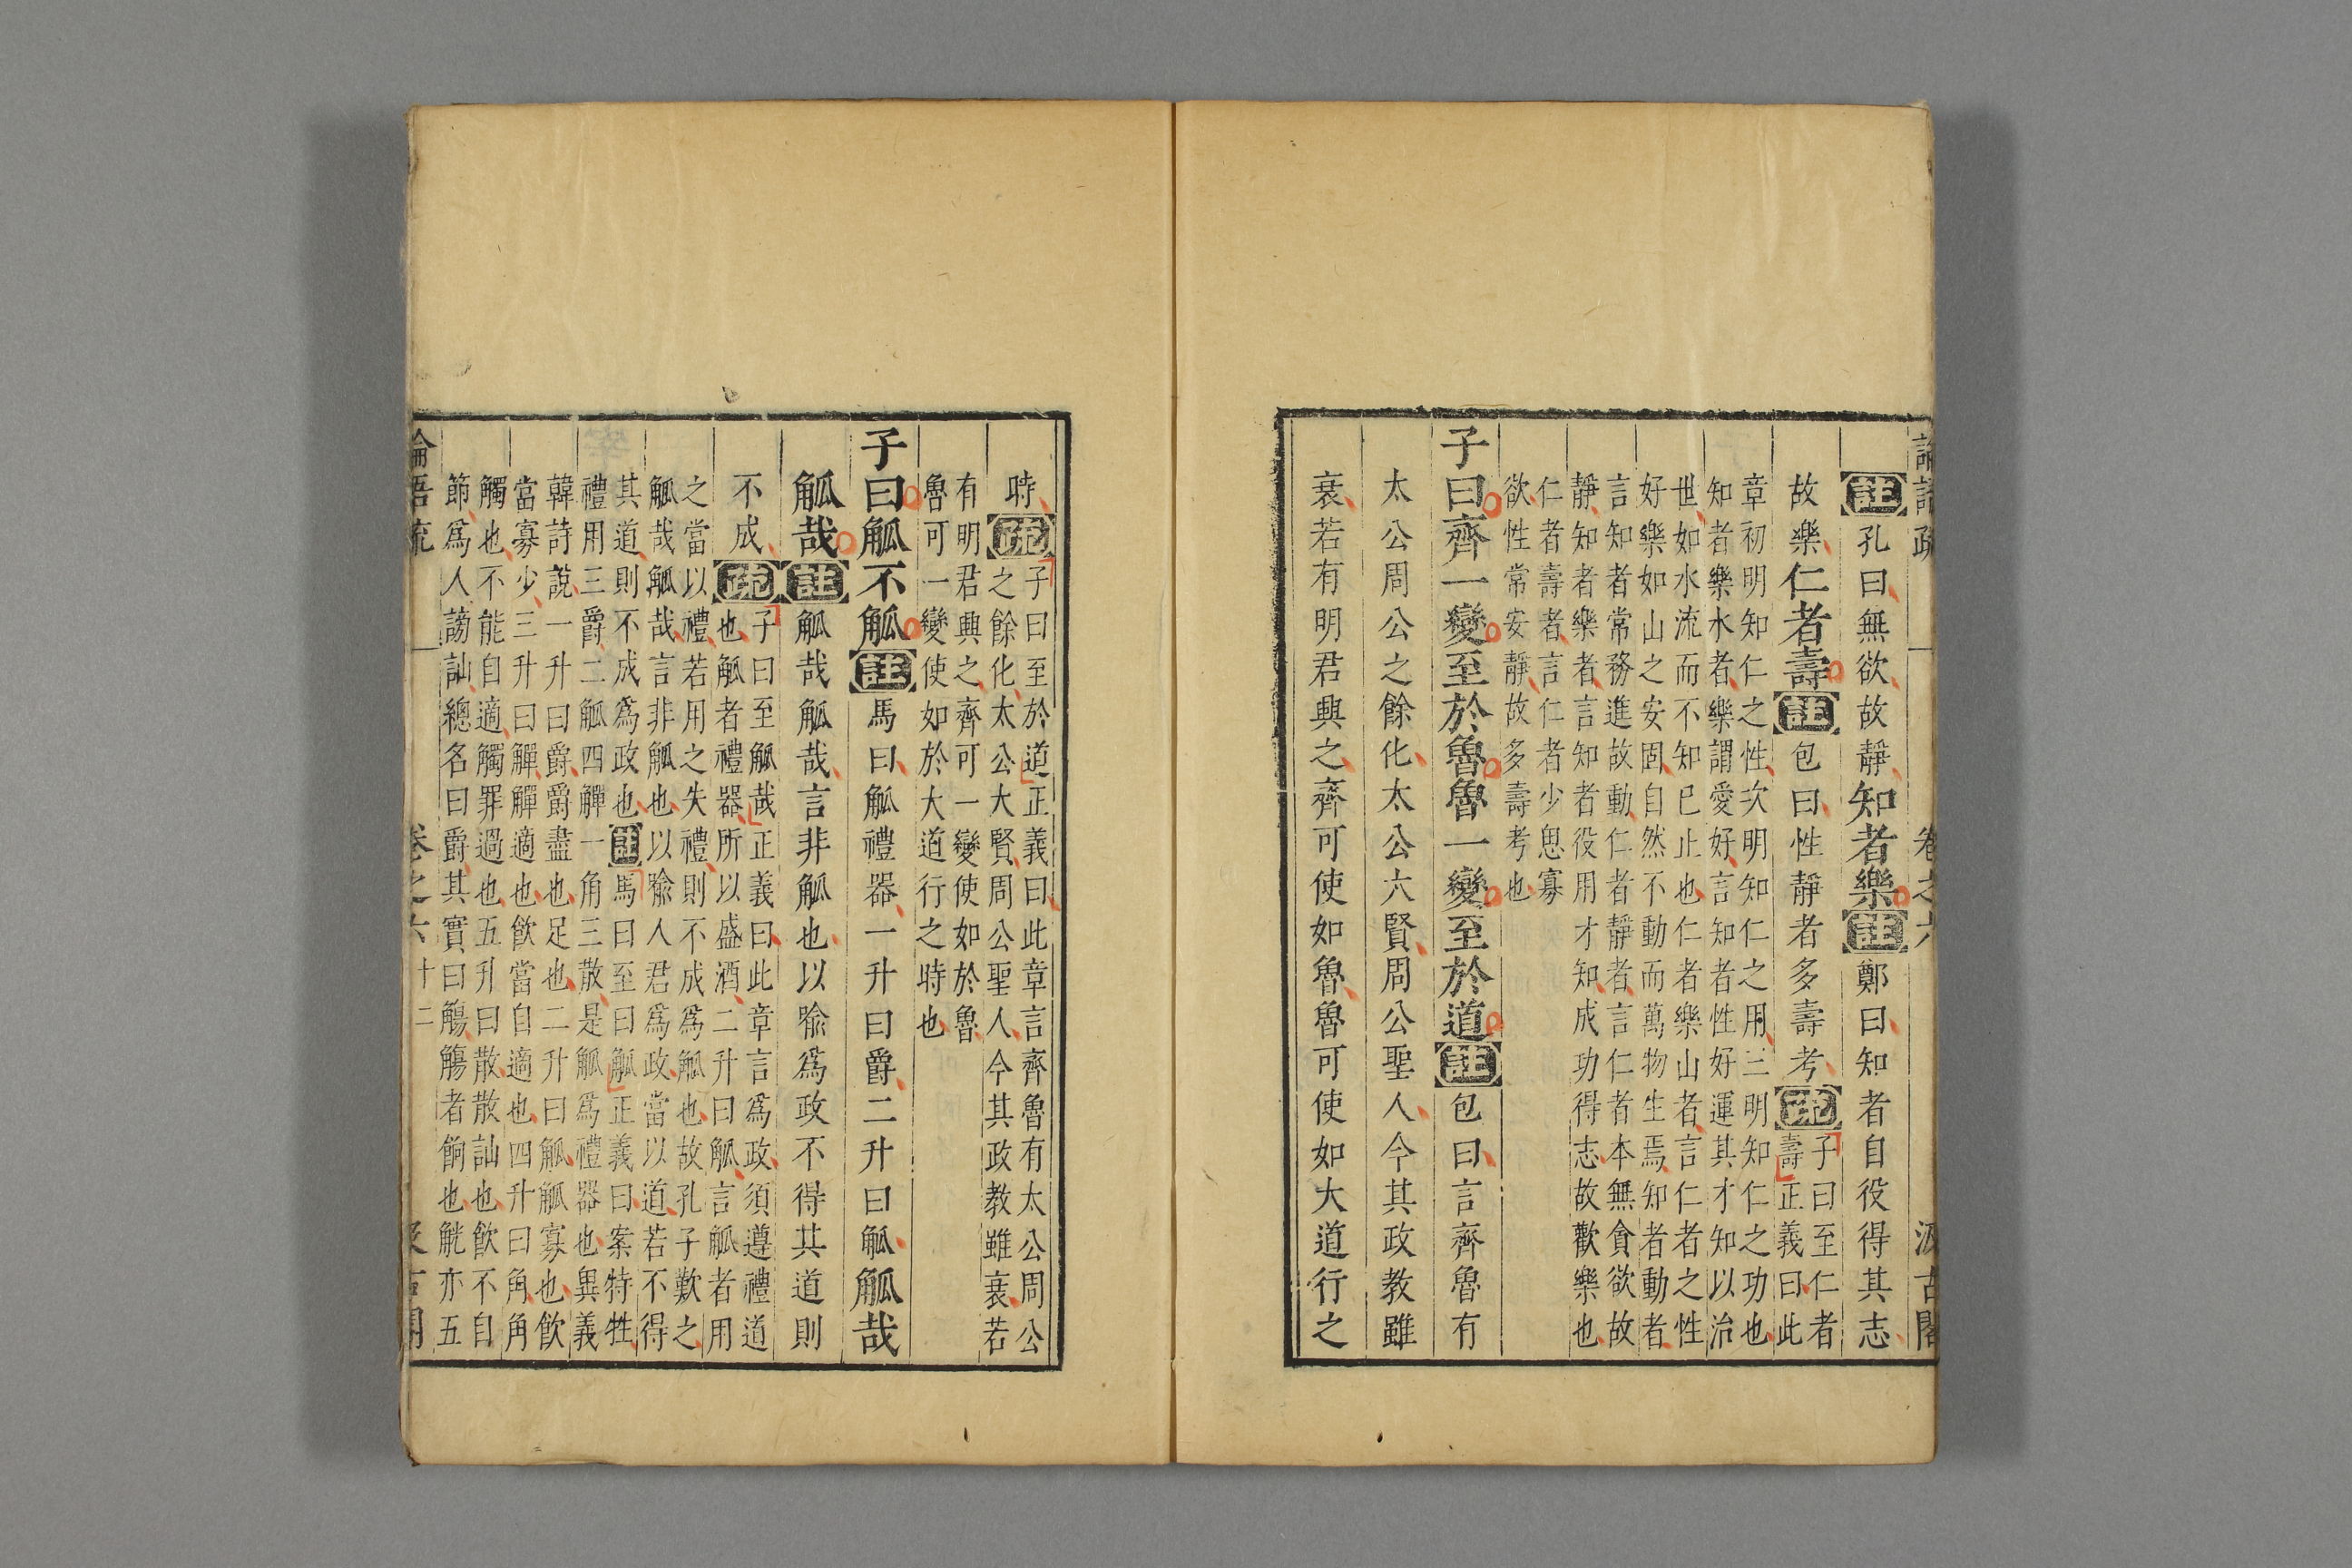 論語疏 卷之六 汲古閣
註孔曰無欲故靜知者樂註鄭曰知者自役得其志
故樂仁者壽註包曰性靜者多壽考疏子曰至仁者
壽正義曰此
章初明知仁之性次明知仁之用三明知仁之功也
知者樂水者樂謂愛好言知者性好運其才知以治
世如水流而不知已止也仁者樂山者言仁者之性
好樂如山之安固自然不動而萬物生焉知者動者
言知者常務進故動仁者靜者言仁者本無貪欲故
靜知者樂者言知者役用才知成功得志故歡樂也
仁者壽者言仁者少思寡
欲性常安靜故多壽考也
子曰齊一變至於魯魯一變至於道註包曰言齊魯有
太公周公之餘化太公大賢周公聖人今其政教雖
衰若有明君興之齊可使如魯魯可使如大道行之
時疏子曰至於道正義曰此章言齊魯有太公周公
之餘化太公大賢周公聖人今其政教雖衰若
有明君興之齊可一變使如於魯
魯可一變使如於大道行之時也
子曰觚不觚註馬曰觚禮器一升曰爵二升曰觚觚哉
觚哉註觚哉觚哉言非觚也以喻爲政不得其道則
不成疏子曰至觚哉正義曰此章言爲政須遵禮道
也觚者禮器所以盛酒二升曰觚言觚者用
之當以禮若用之失禮則不成爲觚也故孔子歎之
觚哉觚哉言非觚也以喻人君爲政當以道若不得
其道則不成爲政也註馬曰至曰觚正義曰案特牲
禮用三爵二觚四觶一角三散是觚爲禮器也異義
韓詩說一升曰爵爵盡也足也二升曰觚觚寡也飮
當寡少三升曰觶觶適也飮當自適也四升曰角角
觸也不能自適觸罪過也五升曰散散訕也飮不自
節爲人謗訕總名曰爵其實曰觴觴者餉也觥亦五
論語疏 卷之六 十二 汲古閣